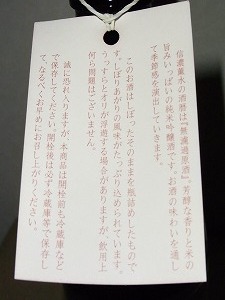 信濃薫水の酒暦は『無濾過原酒』芳醇な香りと米の
旨みいっぱいの純米吟醸酒です。お酒の味わいを通し
て季節感を演出していきます。
このお酒はしぼったそのままを瓶詰めしたもので
す。しぼりあがりの風味がたっぷり込められています。
うっすらとオリが浮遊する場合がありますが、飲用上
何ら問題はございません。
誠に恐れ入りますが、本商品は開栓前も冷蔵庫など
で保存してください。開栓後は必ず冷蔵庫等で保存し
て、なるべくお早めにお召し上がりください。